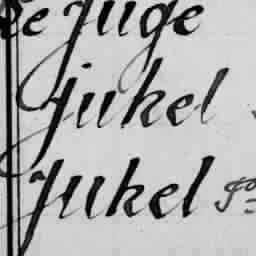 se juge
jukel
Jukel